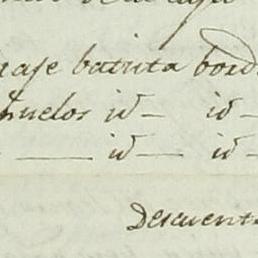 raje batista bord
ñuelos id — id —
— id — id —
Descuent